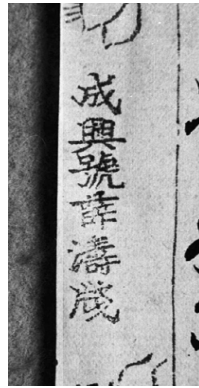 成興號薛濤牋